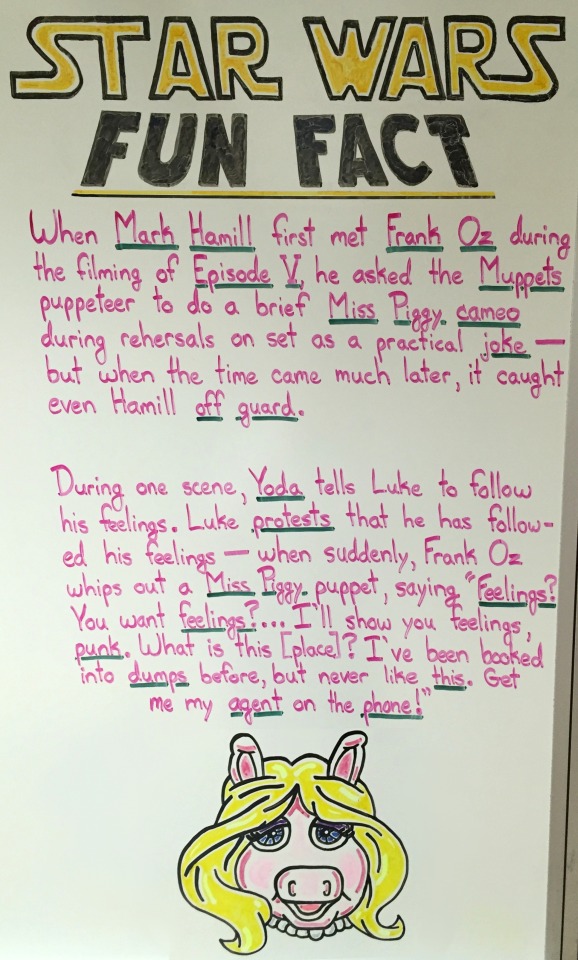 STAR WARS
FUN FACT
When Mark Hamill first met Frank Oz during
the filming of Episode V, he asked the Muppets
puppeteer to do a brief Miss Piggy cameo
during rehersals on set as a practical joke —
but when the time came much later, it caught
even Hamill off guard.
During one scene, Yoda tells Luke to follow
his feelings. Luke protests that he has follow-
ed his feelings — when suddenly, Frank Oz
whips out a Miss Piggy puppet, saying "Feelings?
You want feelings?... I'll show you feelings,
punk. What is this [place]? I've been booked
into dumps before, but never like this. Get
me my agent on the phone!"